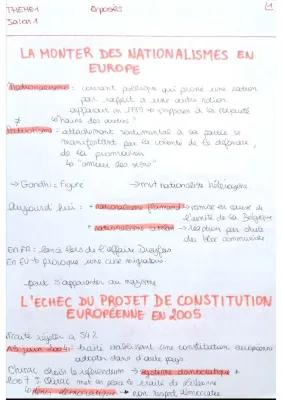 THEME 1
Exposés
1
LA MONTER DES NATIONALISMES EN
EUROPE
Nationalisme : courant politique qui prône une nation
par rapport à une autre nation
apparait en → s'opposer à la royauté
"haine des autres"
≠
Patriotisme : attachement sentimental à sa patrie se
manifestant par la volonté de la défendre,
de la promouvoir
↳ "amour des siens"
→ Gandhi : Figure → mvt nationaliste
Aujourd'hui : • nationalisme flamand → remise en cause de
l'unité de la Belgique
• nationalisme → réaction par chute
du bloc communiste
En FR : lors de l'affaire Dreyfus
En EU → provoque une crise migratoire
peut s'apparenter au nazisme
L'ECHEC DU PROJET DE CONSTITUTION
EUROPÉENNE EN 2005
Traité rejeter à 54%
traité établissant une constitution européenne
adopter dans d'autre pays
Chirac choisi le référendum → système démocratique +
2007 : met en place le traité de Lisbonne
↳ démocratique → non respect démocratie